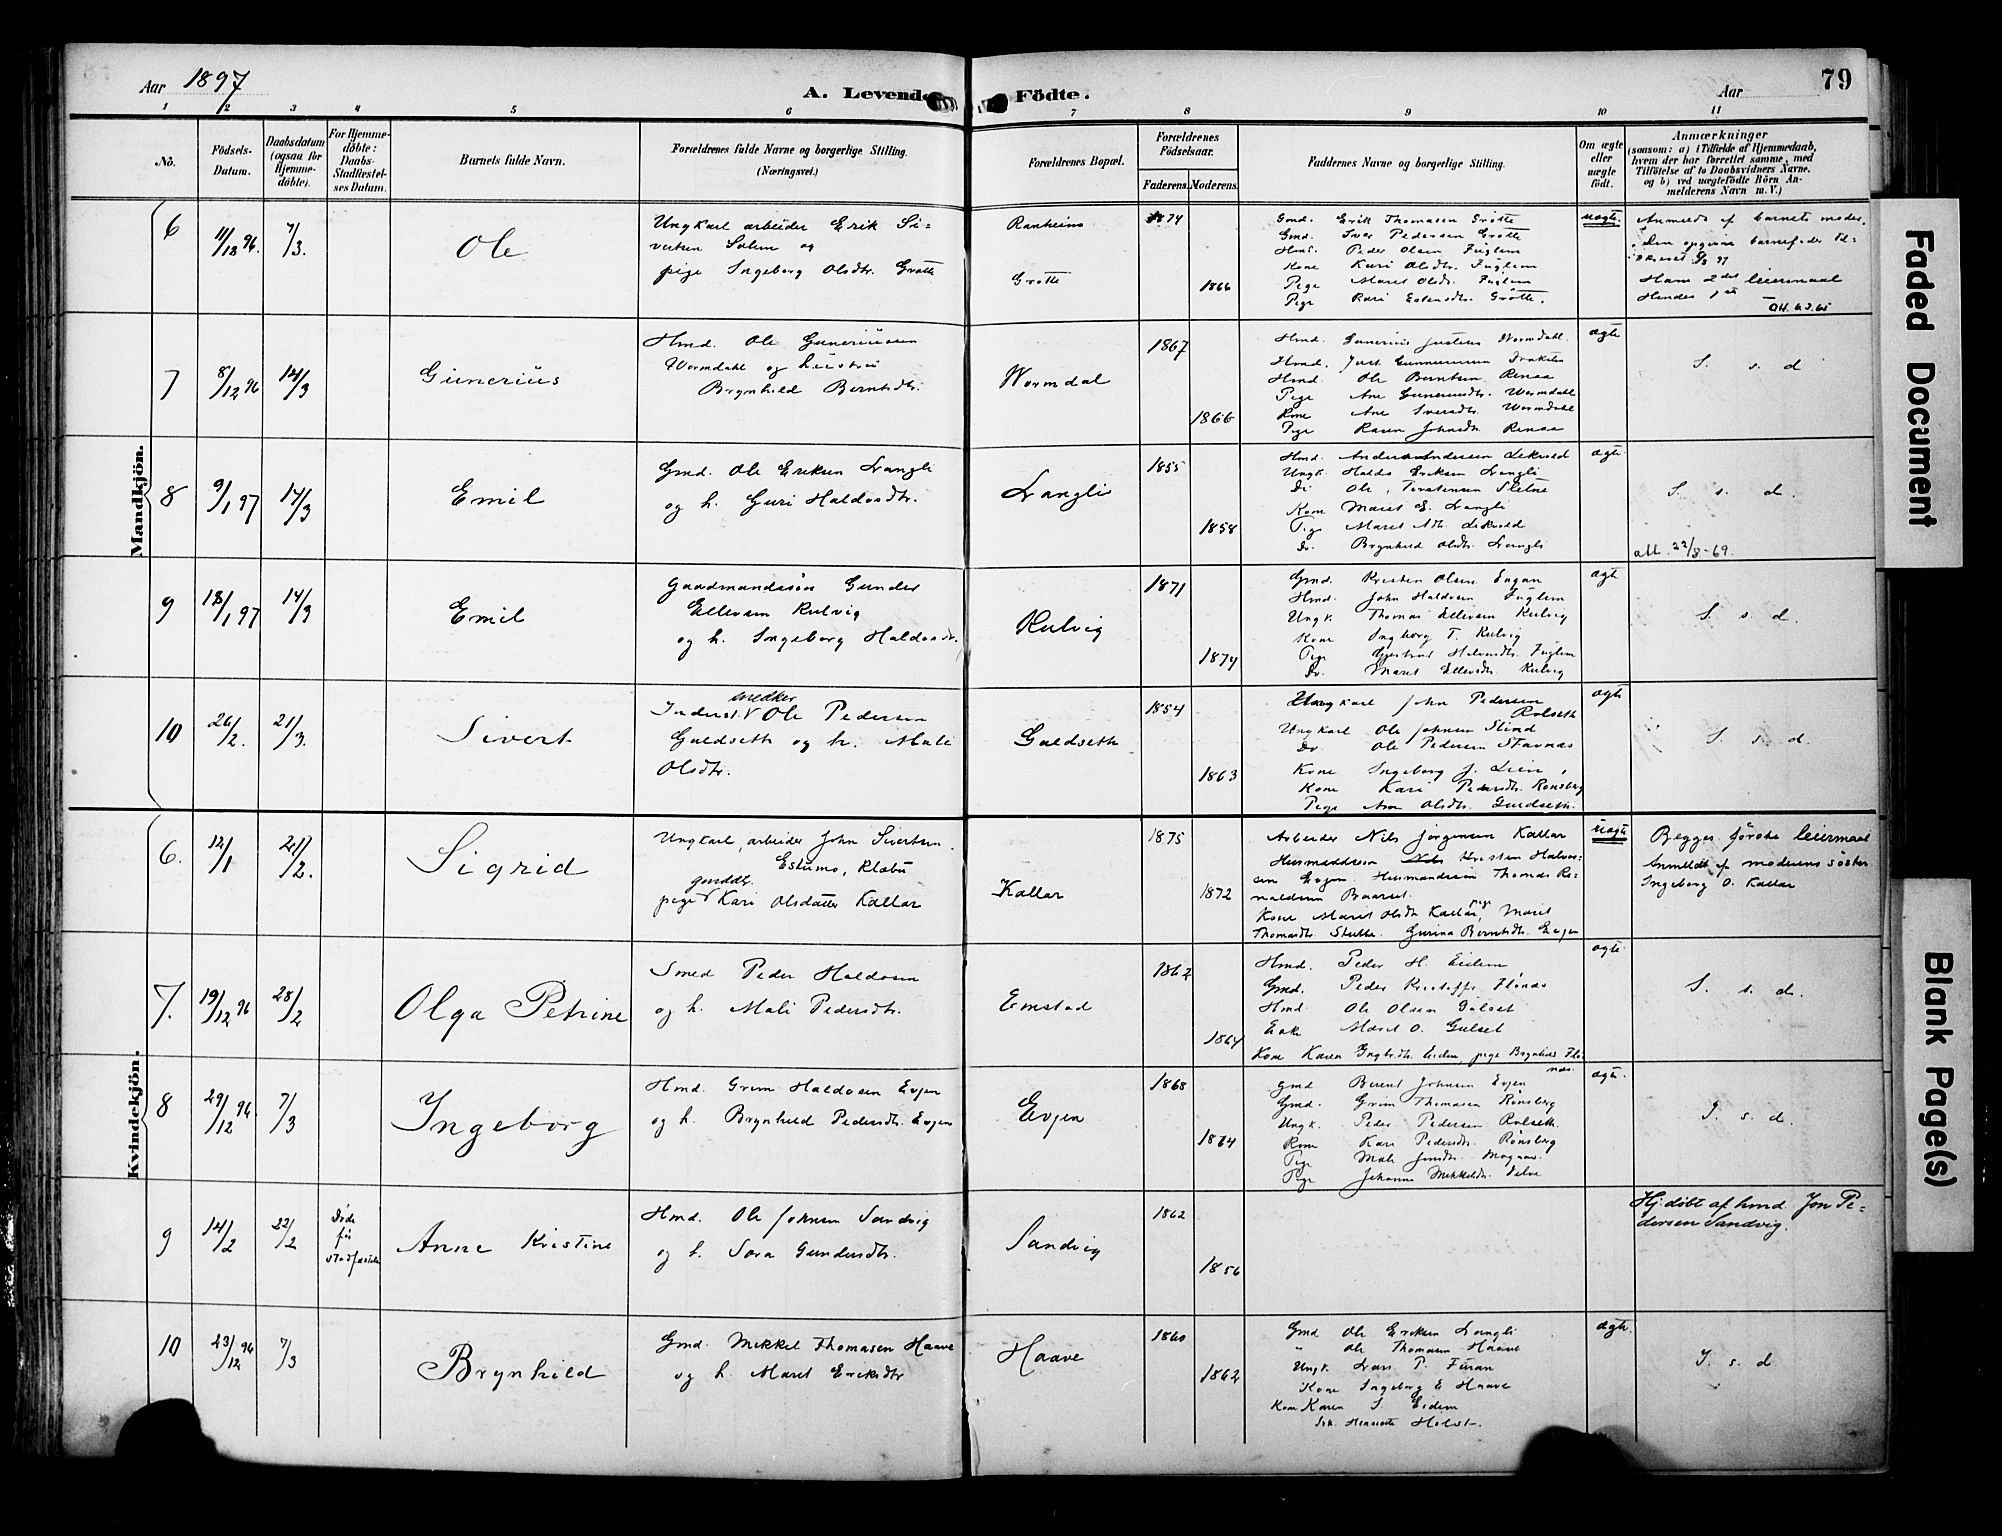 Aar 1897
A. Levende Födte.
Aar
79
1 2 3 4 5 6 7 8 9 10 11
No.
Födsels-Datum.
Daabsdatum (ogsaa for Hjemme-döbte).
For Hjemme-döbte: Daabs-Stadfæstel-ses Datum.
Barnets fulde Navn.
Forældrenes fulde Navne og borgerlige Stilling. (Næringsvei.)
Forældrenes Bopæl.
Forældrenes Födselsaar.
Faderens. Moderens.
Faddernes Navne og borgerlige Stilling.
Om ægte eller uægte födt.
Anmærkninger
(saasom: a) i Tilfælde af Hjemmedaab,
hvem der har forrettet samme, med
Tilföielse af to Daabsvidners Navne,
og b) ved uægtefödte Börn An-
melderens Navn m. V.)
Mandkjön.
6 11/12 96. 7/3. Ole
Ungkarl arbeider Erik Si-
vertsen Solem og
pige Ingeborg Olsdtr. Grøtte
Ranheim
Grøtte
1874
1866
Gmd. Erik Thomasen Grøtte
Gmd. Iver Pedersen Grøtte
Hmd. Peder Olsen Fuglem
Kone Kari Olsdtr. Fuglem
Pige Marit Olsdtr. Fuglem
Pige Kari Estensdtr. Grøtte.
uægte
Anmeldt af barnets moder.
Den opgivne barnefader
Hans 2det leiermaal
Hendes 1ste
7 8/12 96 14/3 Gunerius
Hmd. Ole Guneriusen
Wormdahl og hustru
Brynhild Berntsdtr.
Wormdal
1867
1866
Hmd. Gunerius Justsen Wormdahl
Hmd. Just Gunneriusen
Hmd. Ole Berntsen Renaa
Pige Ane Guneriusdtr. Wormdahl
Kone Ane Iversdtr. Wormdahl
Pige Karen Johnsdtr. Renaa
ægte
S. s. d
8 9/1 97 14/3 Emil
Gmd. Ole Eriksen Langli
og h. Guri Haldosdtr.
Langli
1855
1858
Hmd. Anders Andersen Lekvold
Ungk. Haldo Eriksen Langli
Do Ole Torstensen Sletne
Kone Marit E. Langli
Pige Marit Adtr. Lekvold
Do. Brynhild Olsdtr. Langli
ægte
S. s. d.
att. 22/8-69.
9 18/1 97 14/3 Emil
Gaardmandssøn Gunder
Ellevsen Kulvig
og h. Ingeborg Haldosdtr.
Kulvig
1871
1874
Gmd. Kristen Olsen Engan
Hmd. John Haldosen Fuglem
Ungk. Thomas Ellevsen Kulvig
Kone Ingborg T. Kulvig
Pige Gjertrud Fuglem
Do. Marit Ellevsdtr. Kulvig
ægte
S. s. d.
10 26/2. 21/3. Sivert
snedker
Inderst. V Ole Pedersen
Guldseth og h. Mali
Olsdtr.
Guldseth
1854
1863
Ungkarl John Pedersen
Rolseth
Ungkarl Ole Johnsen Slind
Do Ole Pedersen Stavnæs
Kone Ingeborg J. Lien,
Kone Kari Pedersdtr. Rønsberg
Pige Ane Olsdtr. Guldseth.
ægte
S. s. d.
Kvindekjön.
6. 12/1 21/2. Sigrid
Ungkarl, arbeider John Sivertsen
Estumo, Klæbu
gmddtr.
pige V Kari Olsdatter Kallar
Kallar
1875
1872
Arbeider Nils Jørgensen Kallar
Husmandssøn Kristen Halvor-
sen Evjen Husmandssøn Thomas Re-
naldsen Baarset.
Kone Marit Olsdtr Kallar, pige Marit
Thomasdtr. Stubbe. Gurina Berntsdtr. Evjen
uægte
Begges første leiermaal
Anmeldt af moderens søster
Ingeborg O. Kallar
7. 19/12 96 28/2 Olga Petrine
Smed Peder Haldosen
og h. Mali Pedersdtr.
Emstad
1862
1864
Hmd. Peder H. Eidem
Gmd. Peder Kristoffs. Flønæs
Hmd. Ole Olsen Gulset
Enke Marit O. Gulset
Kone Karen Ingbrdtr. Eidem, pige Brynhild Flø-
næs.
ægte
S. s. d.
8 29/12 96 7/3 Ingeborg
Hmd. Grim Haldosen Evjen
og h. Brynhild Pedersdtr. Evjen
Evjen
1868
1874
Gmd Berent Johnsen Evjen
Gmd. Grim Thomasen Rønsberg
Ungk. Peder Pedersen Rolseth
Kone Kari Pedersdtr. Rønsberg
Pige Mali Jonsdtr. Mogaas.
Pige Johanna Mikkelsdtr. Selve
ægte.
S. s. d.
9 14/2 22/2
Døde
før
stadfæstelse
Anne Kristine
Hmd. Ole Johnsen Sandvig
og h. Sara Gundersdtr.
Sandvig
1862
1856
Hj.døbt af hmd. Jon Pe-
dersen Sandvig.
10 23/12 96 7/3 Brynhild
Gmd. Mikkel Thomasen Haave
og h. Marit Eriksdtr
Haave
1860
1862
Gmd Ole Eriksen Langli
" Ole Thomasen Haave
Ungk. Lars P. Furan
Kone Ingeborg E Haave
Kone Karen I. Eidem
Frk. Henriette Holst.
ægte.
S. s. d.
Faded Document
Blank Page(s)